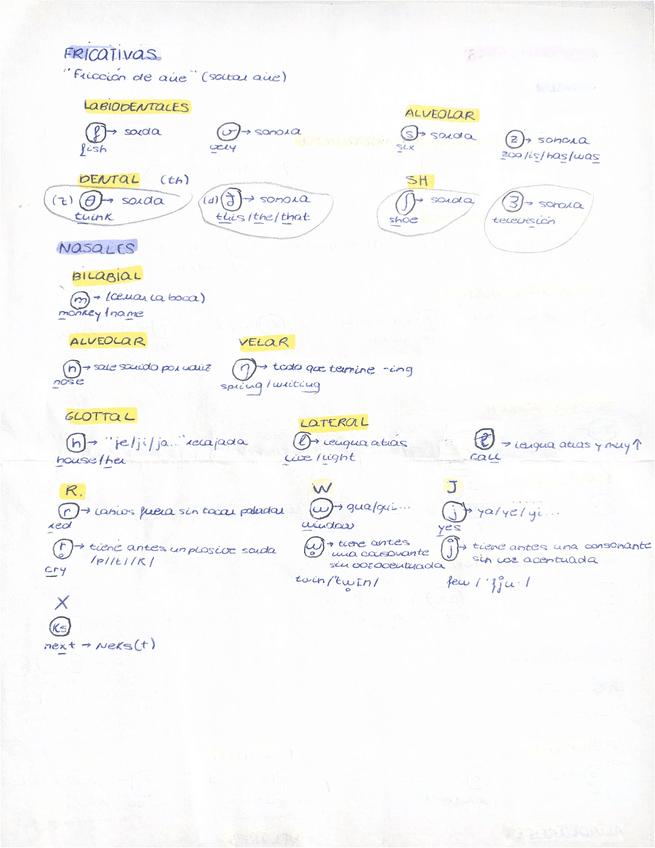 FRICATIVAS
"Fricción de aire" (soltar aire)
LABIODENTALES
ALVEOLAR
f → sorda
v → sonora
s → sorda
z → sonora
fish
very
six
zoo/is/has/was
DENTAL (th)
SH
(z) θ → sorda
(d) ð → sonora
ʃ → sorda
ʒ → sonora
think
this/the/that
shoe
television
NASALES
BILABIAL
m → (cerrar la boca)
monkey/name
ALVEOLAR
VELAR
n → sale sonido por nariz
ŋ → todo que termine -ing
nose
spring/writing
GLOTTAL
LATERAL
h → "je/ji/ja..." relajada
l → lengua atrás
ɫ → lengua atras y muy ↑
house/her
Live/Light
call
R.
W
J
r → labios fuera sin tocar paladar
w → gua/gui...
j → ya/ye/yi...
red
window
yes
r̥ → tiene antes un plosive sorda
/p//t//k/
cry
w̥ → tiene antes
una consonante
sin voz acentuada
twin/'tw̥ɪn/
j̊ → tiene antes una consonante
sin voz acentuada
few /'fj̊u·/
X
ks
next → Neks(t)